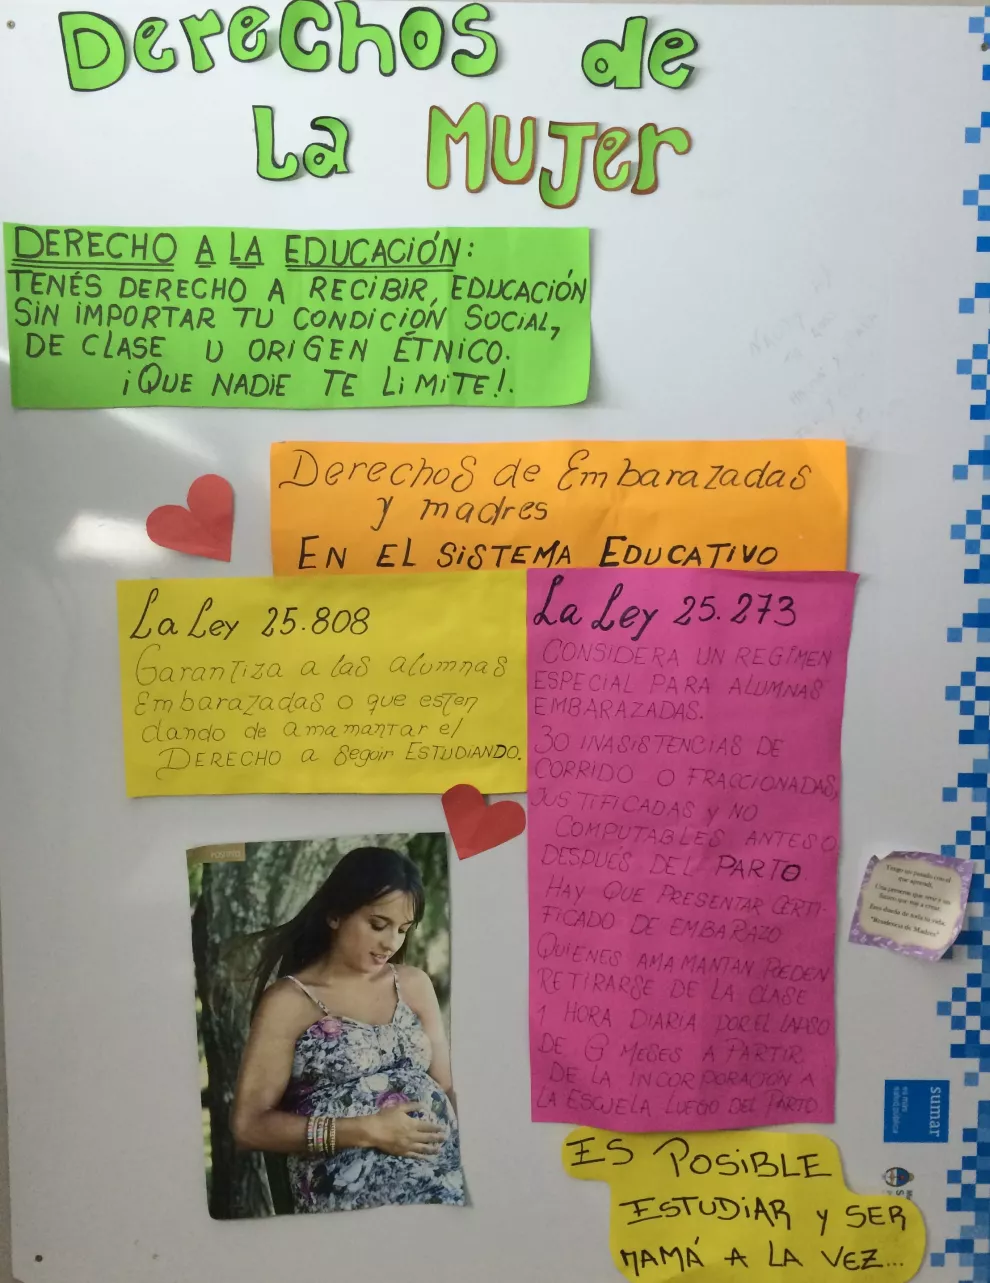 Derechos de
La Mujer
DERECHO A LA EDUCACIÓN:
TENÉS DERECHO A RECIBIR EDUCACIÓN
SIN IMPORTAR TU CONDICIÓN SOCIAL,
DE CLASE U ORIGEN ÉTNICO.
¡QUE NADIE TE LIMITE!.
Derechos de Embarazadas
y madres
EN EL SISTEMA EDUCATIVO
La Ley 25.808
Garantiza a las alumnas
Embarazadas o que esten
dando de amamantar el
DERECHO a seguir ESTUDIANDO.
La Ley 25.273
CONSIDERA UN REGIMEN
ESPECIAL PARA ALUMNAS
EMBARAZADAS.
30 INASISTENCIAS DE
CORRIDO O FRACCIONADAS,
JUSTIFICADAS y NO
COMPUTABLES ANTES O
DESPUÉS DEL PARTO
HAY QUE PRESENTAR CERTI-
FICADO DE EMBARAZO
QUIENES AMAMANTAN PUEDEN
RETIRARSE DE LA CLASE
1 HORA DIARIA POR EL LAPSO
DE 6 MESES A PARTIR
DE LA INCORPORACIÓN A
LA ESCUELA LUEGO DEL PARTO
ES POSIBLE
ESTUDIAR y SER
MAMÁ A LA VEZ...
Tengo un pasado con el
que aprendí,
Una presente que vivir y un
futuro que voy a crear.
Soy dueña de toda la vida.
"Residencia de Madres"
sumar
es más
salud pública